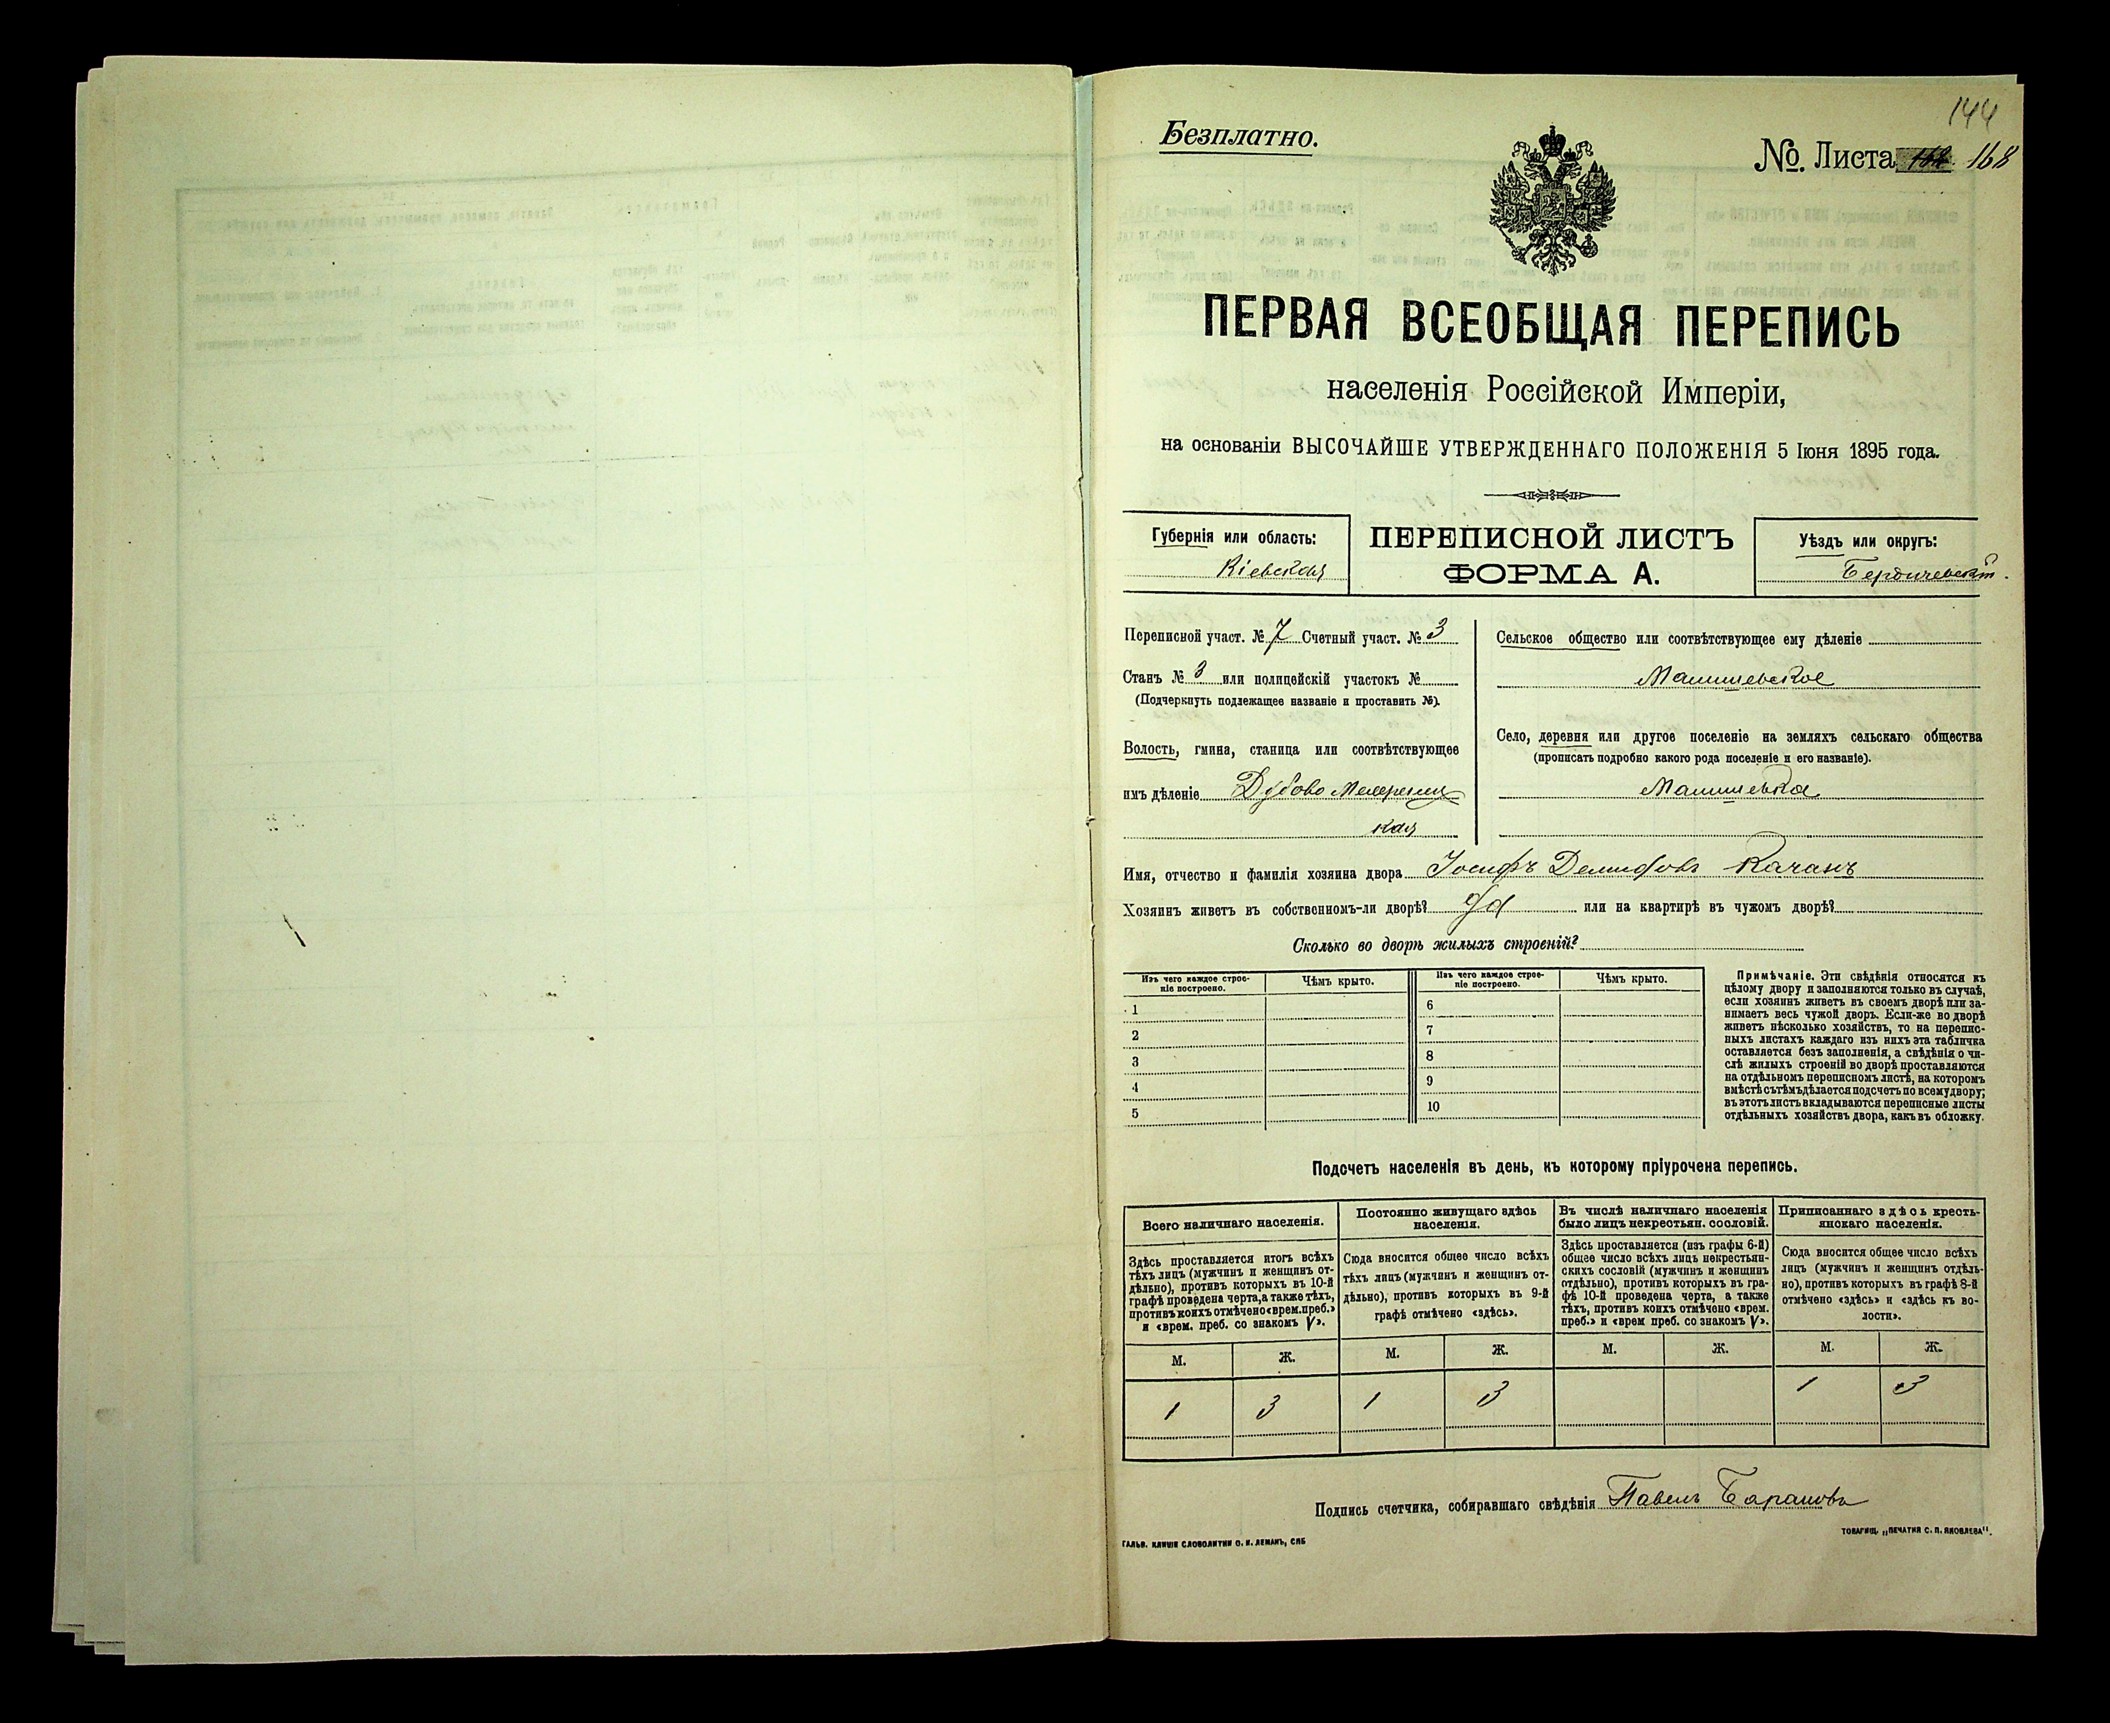 144
Безплатно.
№. Листа 168
ПЕРВАЯ ВСЕОБЩАЯ ПЕРЕПИСЬ
населенія Россійской Имперіи,
на основаніи ВЫСОЧАЙШЕ УТВЕРЖДЕННАГО ПОЛОЖЕНІЯ 5 Іюня 1895 года.
Губернія или область:
Кіевская
ПЕРЕПИСНОЙ ЛИСТЪ
ФОРМА А.
Уѣздъ или округъ:
Бердичевскій.
Переписной участ. № 7 Счетный участ. № 3
Станъ № 3 или полицейскій участокъ №
(Подчеркнуть подлежащее названіе и проставить №).
Волость, гмина, станица или соотвѣтствующее
имъ дѣленіе Дубово
кая
Сельское общество или соотвѣтствующее ему дѣленіе
Село, деревня или другое поселеніе на земляхъ сельскаго общества
(прописать подробно какого рода поселеніе и его названіе).
Имя, отчество и фамилія хозяина двора Іосифъ Качанъ
Хозяинъ живетъ въ собственномъ-ли дворѣ? Да или на квартирѣ въ чужомъ дворѣ?
Сколько во дворѣ жилыхъ строеній?
Изъ чего каждое строе-
ніе построено.
Чѣмъ крыто.
Изъ чего каждое строе-
ніе построено.
Чѣмъ крыто.
1
2
3
4
5
6
7
8
9
10
Примѣчаніе. Эти свѣдѣнія относятся къ
цѣлому двору и заполняются только въ случаѣ,
если хозяинъ живетъ въ своемъ дворѣ или за-
нимаетъ весь чужой дворъ. Если-же во дворѣ
живетъ нѣсколько хозяйствъ, то на перепис-
ныхъ листахъ каждаго изъ нихъ эта табличка
оставляется безъ заполненія, а свѣдѣнія о чи-
слѣ жилыхъ строеній во дворѣ проставляются
на отдѣльномъ переписномъ листѣ, на которомъ
вмѣстѣ съ тѣмъ дѣлается подсчетъ по всему двору;
въ этотъ листъ вкладываются переписные листы
отдѣльныхъ хозяйствъ двора, какъ въ обложку.
Подсчетъ населенія въ день, къ которому пріурочена перепись.
Всего наличнаго населенія.
Постоянно живущаго здѣсь
населенія.
Въ числѣ наличнаго населенія
было лицъ некрестьян. сословій.
Приписаннаго здѣсь кресть-
янскаго населенія.
Здѣсь проставляется итогъ всѣхъ
тѣхъ лицъ (мужчинъ и женщинъ от-
дѣльно), противъ которыхъ въ 10-й
графѣ проведена черта, а также тѣхъ,
противъ коихъ отмѣчено «врем. преб.»
и «врем. преб. со знакомъ V».
Сюда вносится общее число всѣхъ
тѣхъ лицъ (мужчинъ и женщинъ от-
дѣльно), противъ которыхъ въ 9-й
графѣ отмѣчено «здѣсь».
Здѣсь проставляется (изъ графы 6-й)
общее число всѣхъ лицъ некрестьян-
скихъ сословій (мужчинъ и женщинъ
отдѣльно), противъ которыхъ въ гра-
фѣ 10-й проведена черта, а также
тѣхъ, противъ коихъ отмѣчено «врем.
преб.» и «врем преб. со знакомъ V».
Сюда вносится общее число всѣхъ
лицъ (мужчинъ и женщинъ отдѣль-
но), противъ которыхъ въ графѣ 8-й
отмѣчено «здѣсь» и «здѣсь къ во-
лости».
М. Ж. М. Ж. М. Ж. М. Ж.
1 3 1 3 1 3
Подпись счетчика, собиравшаго свѣдѣнія Павелъ
ГАЛЬВ. КЛИШЕ СЛОВОЛИТНИ О. И. ЛЕМАНЪ, СПБ
ТОВАРИЩ. „ПЕЧАТНЯ С. П. ЯКОВЛЕВА".